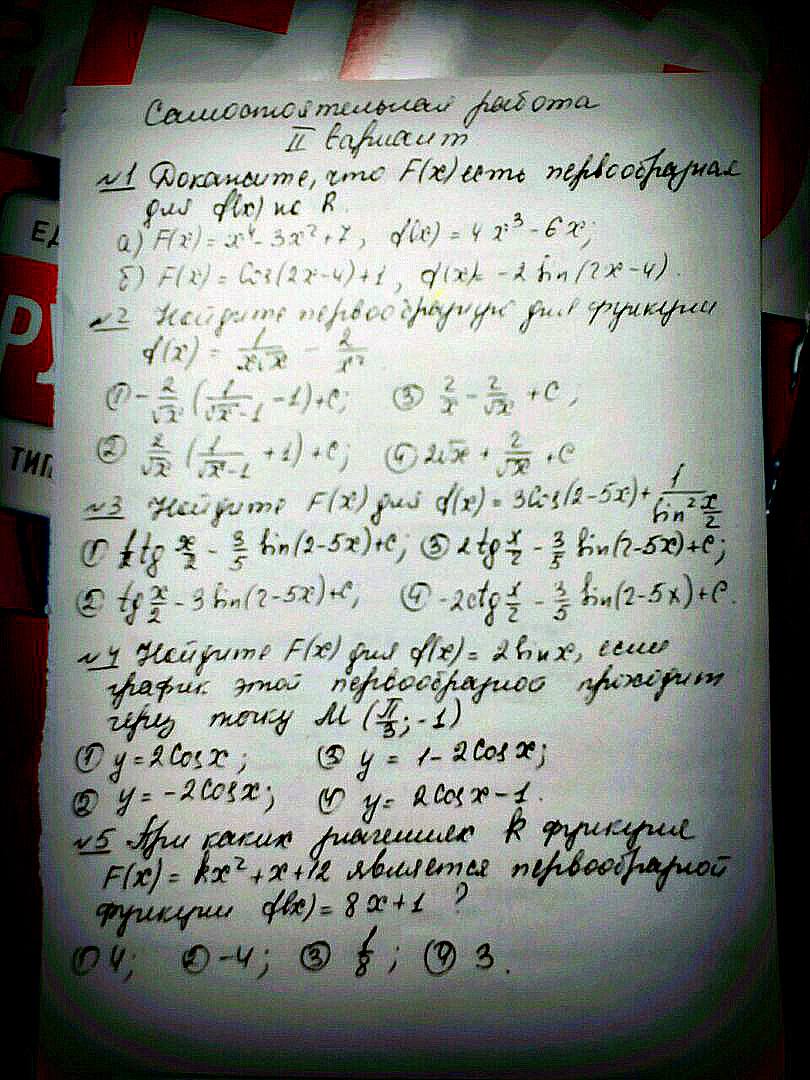 Самостоятельная работа
II вариант
№1 Докажите, что F(x) есть первообразная
для f(x) на R.
а) F(x) = x⁴ - 3x² + 7, f(x) = 4x³ - 6x;
б) F(x) = cos(2x-4)+1, f(x) = -2sin(2x-4).
№2 Найдите первообразную для функции
f(x) = 1/(x√x) - 2/x²
① -2/√x (1/(√x-1) -1)+C; ③ 2/x - 2/√x + C;
② 2/√x (1/(√x-1) +1)+C; ④ 2√x + 2/√x + C
№3 Найдите F(x) для f(x) = 3cos(2-5x) + 1/(sin² x/2)
① 1/2 tg x/2 - 3/5 sin(2-5x)+C; ③ 2tg x/2 - 3/5 sin(2-5x)+C;
② tg x/2 - 3sin(2-5x)+C; ④ -2ctg x/2 - 3/5 sin(2-5x)+C.
№4 Найдите F(x) для f(x) = 2sinx, если
график этой первообразной проходит
через точку M (π/3; -1)
① y = 2cosx; ③ y = 1-2cosx;
② y = -2cosx; ④ y = 2cosx-1.
№5 При каких значениях k функция
F(x) = kx² + x + 12 является первообразной
функции f(x) = 8x+1 ?
① 4; ② -4; ③ 1/8; ④ 3.
ЕД
РУ
ТИП